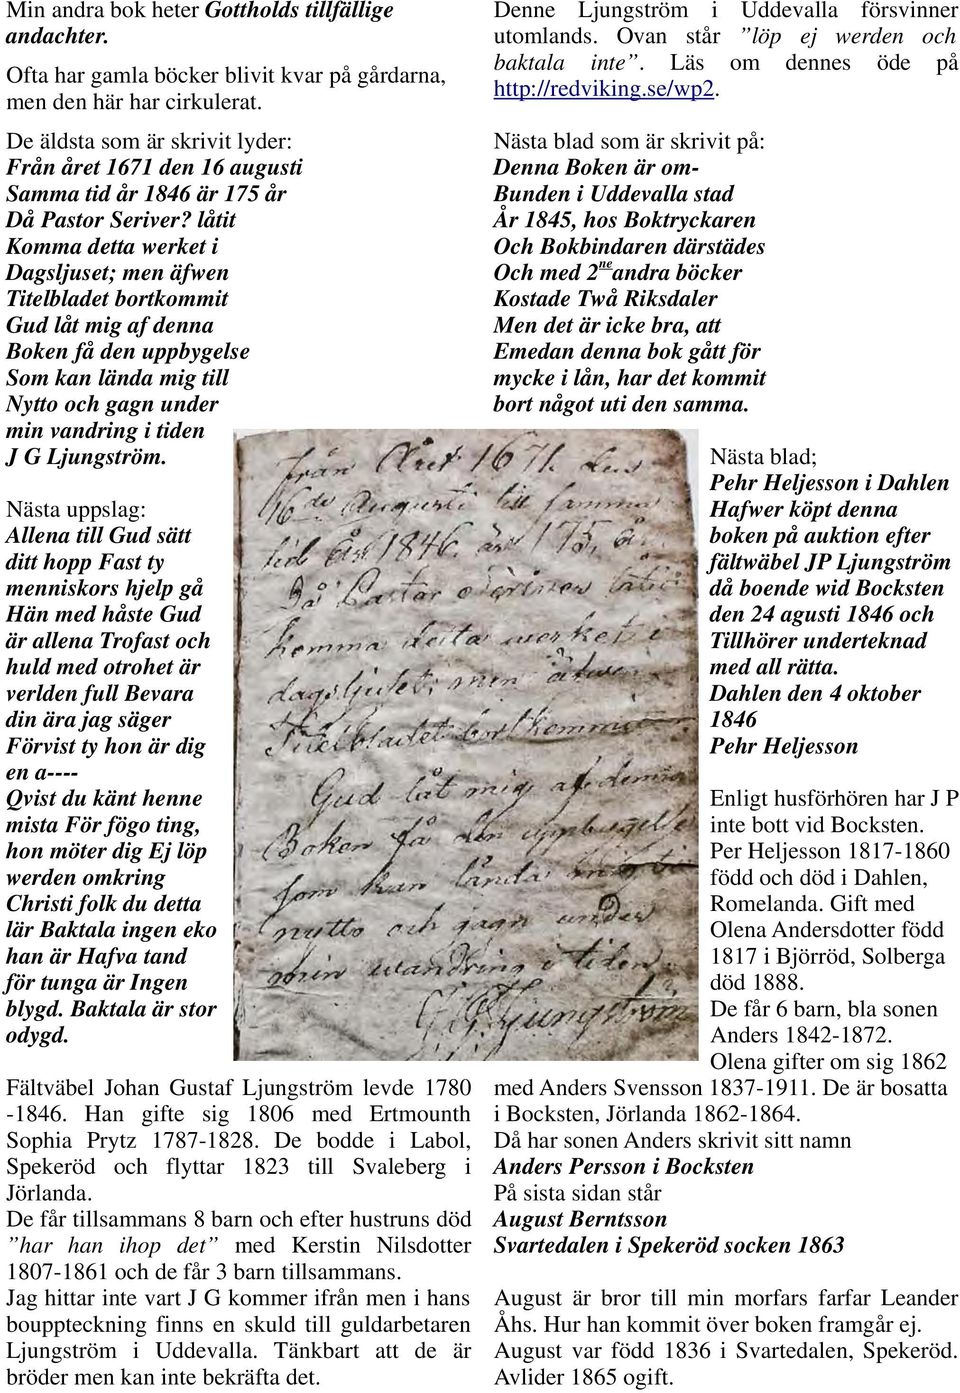 Min andra bok heter Gottholds tillfällige
andachter.
Ofta har gamla böcker blivit kvar på gårdarna,
men den här har cirkulerat.
De äldsta som är skrivit lyder:
Från året 1671 den 16 augusti
Samma tid år 1846 är 175 år
Då Pastor Seriver? låtit
Komma detta werket i
Dagsljuset; men äfwen
Titelbladet bortkommit
Gud låt mig af denna
Boken få den uppbygelse
Som kan lända mig till
Nytto och gagn under
min vandring i tiden
J G Ljungström.
Nästa uppslag:
Allena till Gud sätt
ditt hopp Fast ty
menniskors hjelp gå
Hän med håste Gud
är allena Trofast och
huld med otrohet är
verlden full Bevara
din ära jag säger
Förvist ty hon är dig
en a----
Qvist du känt henne
mista För fögo ting,
hon möter dig Ej löp
werden omkring
Christi folk du detta
lär Baktala ingen eko
han är Hafva tand
för tunga är Ingen
blygd. Baktala är stor
odygd.
från Året 1671. den
16de Augusti till samma
tid År 1846. är 175, år.
Då Pastor låtit
komma detta werket i
dagsljuset; men äfwen
Titelbladet bortkommit
Gud låt mig af denna
Boken få den uppbygelse
som kan lända mig till
nytto och gagn under
min wandring i tiden.
J G Ljungström
Fältväbel Johan Gustaf Ljungström levde 1780
-1846. Han gifte sig 1806 med Ertmounth
Sophia Prytz 1787-1828. De bodde i Labol,
Spekeröd och flyttar 1823 till Svaleberg i
Jörlanda.
De får tillsammans 8 barn och efter hustruns död
”har han ihop det” med Kerstin Nilsdotter
1807-1861 och de får 3 barn tillsammans.
Jag hittar inte vart J G kommer ifrån men i hans
bouppteckning finns en skuld till guldarbetaren
Ljungström i Uddevalla. Tänkbart att de är
bröder men kan inte bekräfta det.
Denne Ljungström i Uddevalla försvinner
utomlands. Ovan står ”löp ej werden och
baktala inte”. Läs om dennes öde på
http://redviking.se/wp2.
Nästa blad som är skrivit på:
Denna Boken är om-
Bunden i Uddevalla stad
År 1845, hos Boktryckaren
Och Bokbindaren därstädes
Och med 2 ne andra böcker
Kostade Twå Riksdaler
Men det är icke bra, att
Emedan denna bok gått för
mycke i lån, har det kommit
bort något uti den samma.
Nästa blad;
Pehr Heljesson i Dahlen
Hafwer köpt denna
boken på auktion efter
fältwäbel JP Ljungström
då boende wid Bocksten
den 24 agusti 1846 och
Tillhörer underteknad
med all rätta.
Dahlen den 4 oktober
1846
Pehr Heljesson
Enligt husförhören har J P
inte bott vid Bocksten.
Per Heljesson 1817-1860
född och död i Dahlen,
Romelanda. Gift med
Olena Andersdotter född
1817 i Björröd, Solberga
död 1888.
De får 6 barn, bla sonen
Anders 1842-1872.
Olena gifter om sig 1862
med Anders Svensson 1837-1911. De är bosatta
i Bocksten, Jörlanda 1862-1864.
Då har sonen Anders skrivit sitt namn
Anders Persson i Bocksten
På sista sidan står
August Berntsson
Svartedalen i Spekeröd socken 1863
August är bror till min morfars farfar Leander
Åhs. Hur han kommit över boken framgår ej.
August var född 1836 i Svartedalen, Spekeröd.
Avlider 1865 ogift.